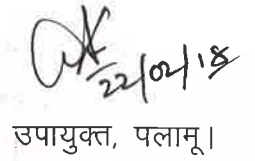 22/02/18
उपायुक्त, पलामू।